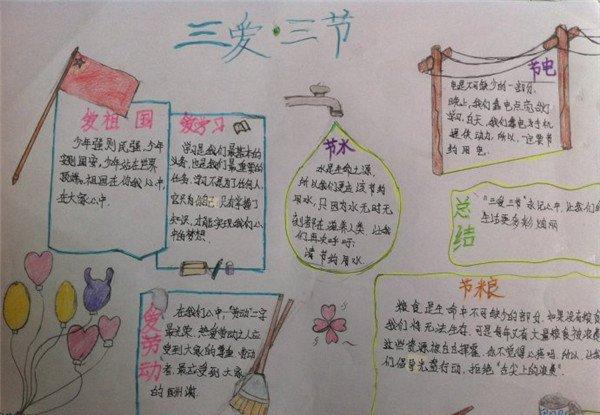 三爱·三节
爱祖国
少年强则民强,少年
强则国强,少年站在世界
顶端。祖国在你我心中,
在大家心中。
爱学习
学习是我们最基本的
义务,也是我们最重要的
任务,学习不是为了任何人,
它只为自己,只有掌握了
知识,才能实现我们心
中的梦想。
节水
水是生命之源,
所以我们更应该节约
用水,只因为水无时无
刻都在滋养人类,让我
们再次呼吁:
请节约用水.
节电
电是不可缺少的一部分,
晚上,我们靠电点亮台灯
学习,白天,我们靠电为手机
提供动力,所以,一定要节
约用电.
总结
“三爱三节”永记心中,让我们的
生活更多彩绚丽
爱劳动
在我们心中,“劳动”二字
最光荣,热爱劳动之人应
受到大家的尊重,劳动
者,最应受到大家
的回满.
节粮
粮食是生命中不可缺少的部分,如果没有粮食
我们将无法生存,可是每年又有大量粮食被浪费
这些资源被白白挥霍,你不觉得心疼吗,所以,让我
们倡导光盘行动,拒绝“舌尖上的浪费”